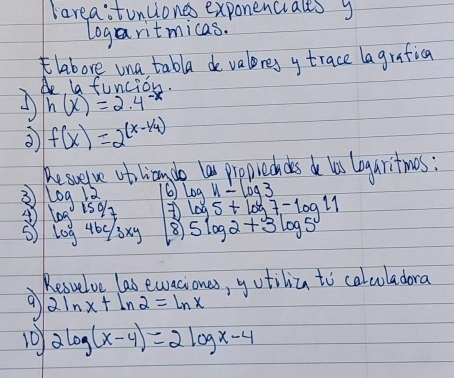 Tarea: Funciones exponenciales y
logaritmicas.
Elabore una tabla de valores y trace la grafica
de la función.
1) h(x) = 2.4^-x
2) f(x) = 2^(x-1/4)
Resuelve utilizando las propiedades de los logaritmos:
3) log 12
4) log 159/7
5) log 4bc/3xy
6) log 11 - log 3
7) log 5 + log 7 - log 11
8) 5 log 2 + 3 log 5
Resuelve las ecuaciones, y utiliza tu calculadora
9) 2 ln x + ln 2 = ln x
10) 2 log (x-4) = 2 log x - 4